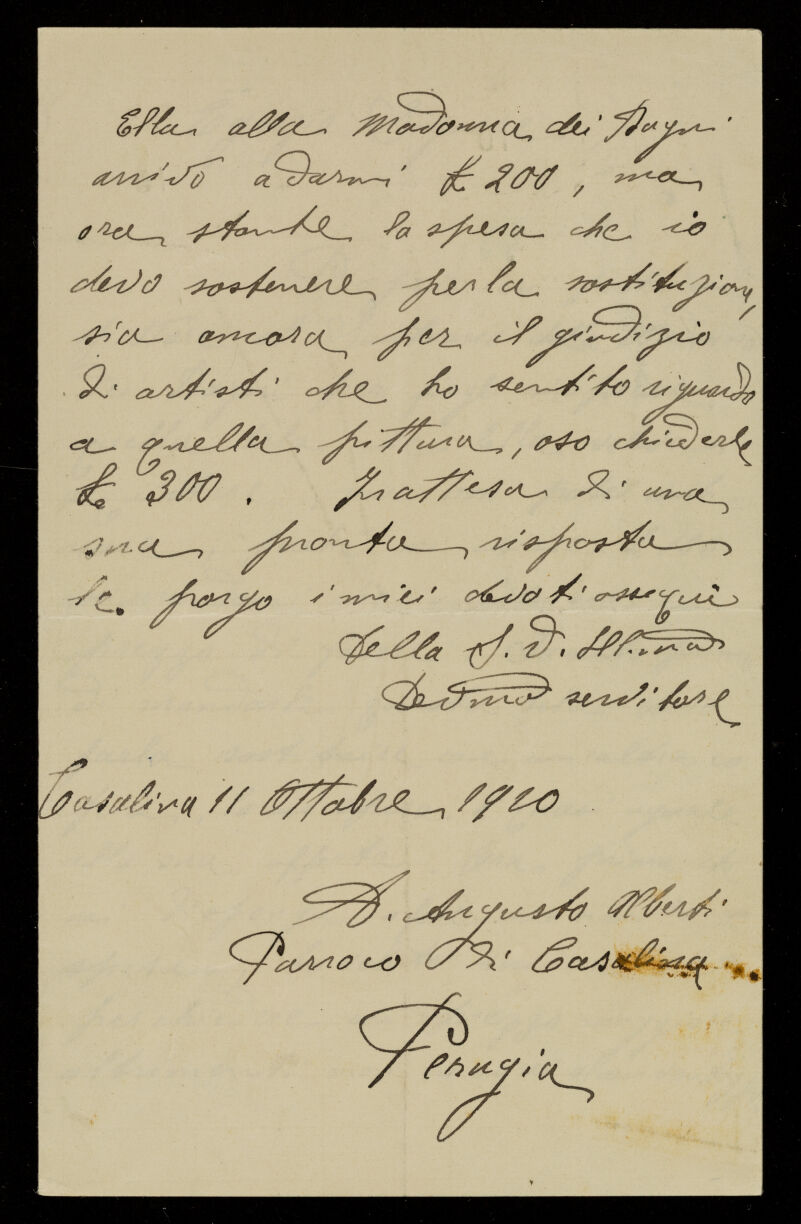 Ella alla Madonna dei Bagni
arrivò a darmi £ 200, ma
ora stante la spesa che io
devo sostenere per la sostituzione,
sia ancora per il giudizio
di artisti che ho sentito riguardo
a quella pittura, oso chiederle
£ 300. In attesa di una
sua pronta risposta
le porgo i miei devoti ossequi
Della S. V. Ill.ma
Dev.mo servitore
Casalina 11 Ottobre 1910
D. Augusto Alberti
Parroco di Casalina
Perugia